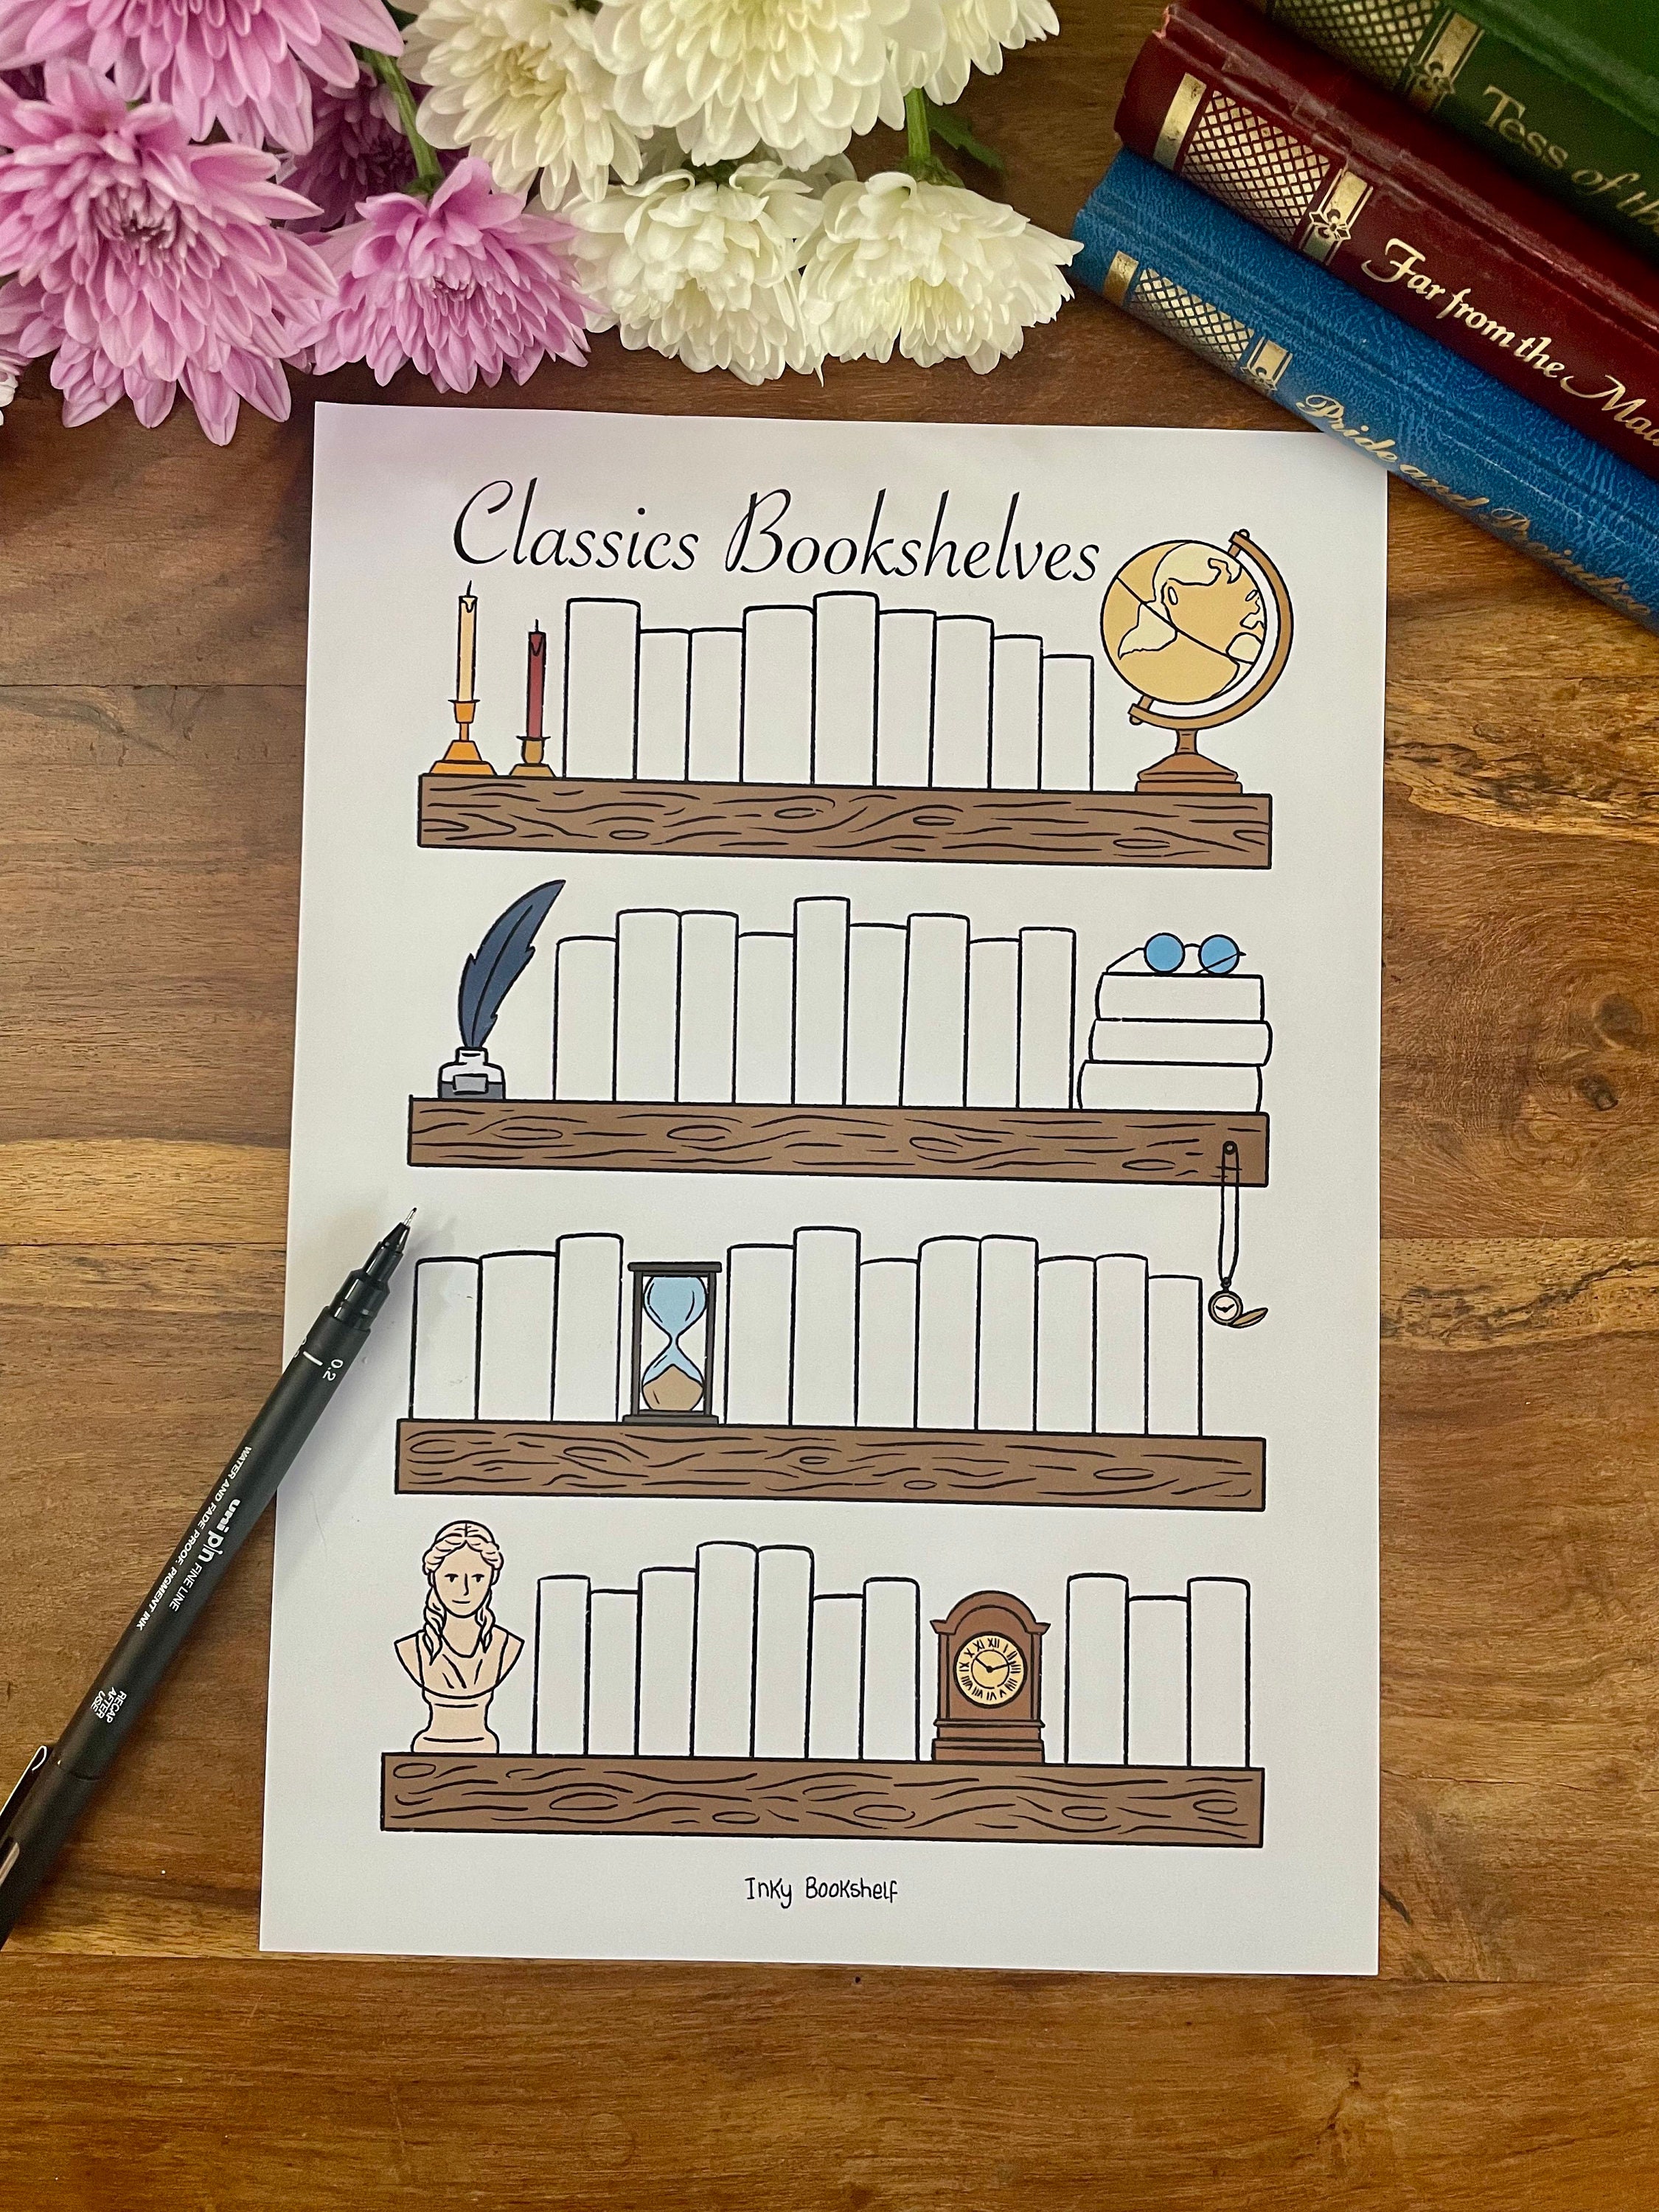 Tess of th
Far from the Mad
Pride and Prejudice
Classics Bookshelves
0.2
uni pin FINE LINE
WATER AND FADE PROOF, PIGMENT INK
RECAP
AFTER
USE
XII
Inky Bookshelf